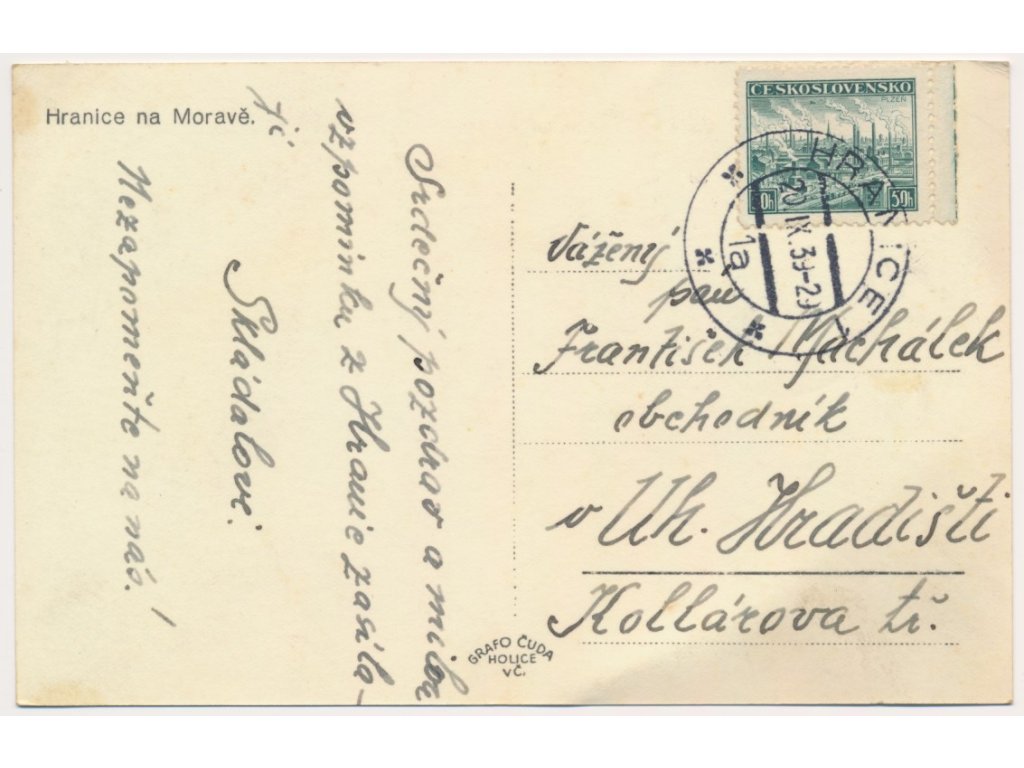 Hranice na Moravě.
Srdečný pozdrav a milou
vzpomínku z Hranic zasíla-
jí
Skládalovi.
Nezapomeňte na nás!
ČESKOSLOVENSKO
PLZEŇ
50h 50h
HRANICE 1
20.IX.39-20
1a
Vážený
pan
František Machálek
obchodník
v Uh. Hradišti
Kollárova tř.
GRAFO ČUDA
HOLICE
VČ.